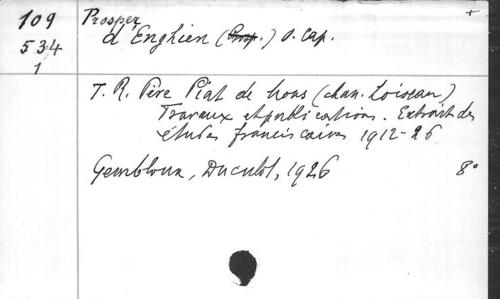 109
534
1
Prosper +
d'Enghien (Prosp.) O. Cap.
T. R. Père Piat de Mons (chan. Loiseau)
Travaux et publications. Extrait des
études franciscaines 1912-26
Gembloux, Duculot, 1926 8°